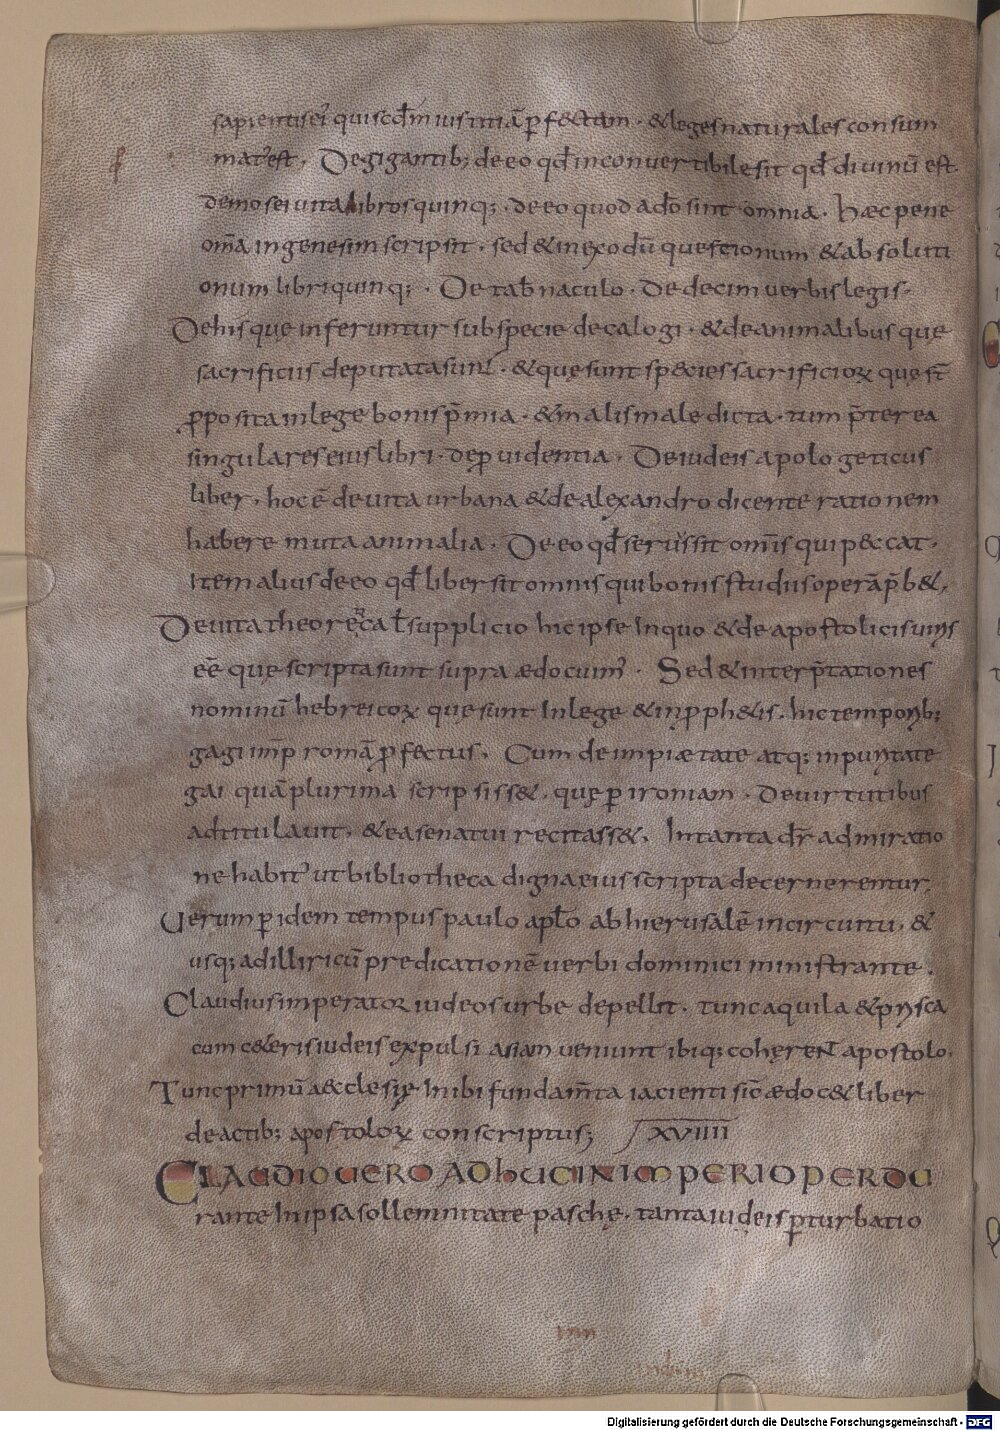 sapientis eī qui scd̄m iustitiā p̱fectam · & leges naturales consum
mat'est · De gigantib; de eo qd̄ inconvertibile sit qd̄ divinū est
de mosei vita libros quinq; · de eo quod a dō sint omnia · haec pene
om̄a in genesim scripsit · sed & in exodū quęstionum & absoluti
onum libri quinq; · De tab̄naculo · De decim verbis legis ·
De his quę inferuntur sub specie decalogi · & de animalibus quę
sacrificiis deputata sunt · & quę sunt species sacrificioꝝ quę st̄
p̱posita in lege bonis p̄mia · & malis maledicta · tum p̄terea
singulares eius libri · de p̱videntia · De iudeis apologeticus
liber · hoc ē de vita urbana & de alexandro dicente rationem
habere muta animalia · De eo qd̄ servus sit om̄is qui peccat ·
Item alius de eo qd̄ liber sit omnis qui bonis studiis operā p̄b& ·
De vita theoręca t̄ supplicio hic ipse In quo & de apostolicis viris
eē quę scripta sunt supra ædocuim' · Sed & interp̄tationes
nominū hebreicoꝝ quę sunt In lege & in p̱ph&is · hic temporib;
gagi imp̱ romā p̱fectus · Cum de impiætate atq; inpuritate
gai quā plurima scripsiss& · quę p̱ ironiam · De virtutibus
adtitulavit · & ea senatui recitass& · In tanta dr̄ admiratio
ne habit' ut bibliotheca digna eius scripta decernerentur ·
Verum p̱ idem tempus paulo apłō ab hierusalē in circuitu · &
usq; ad illiricū predicationē verbi dominici ministrante ·
Claudius imperator iudeos urbe depellit · tunc aquila & prisca
cum c&eris iudeis expulsi asiam veniunt ibiq; cohęrent apostolo ·
Tunc primū aecclesię In ibi fundam̄ta iacienti sic̄ ædoc& liber
de actib; apostoloꝝ conscriptus; XVIIII
CLAUDIO VERO ADHUC IN IMPERIO PERDU
rante In ipsa sollemnitate paschę · tanta iudeis p̱turbatio
Digitalisierung gefördert durch die Deutsche Forschungsgemeinschaft - DFG